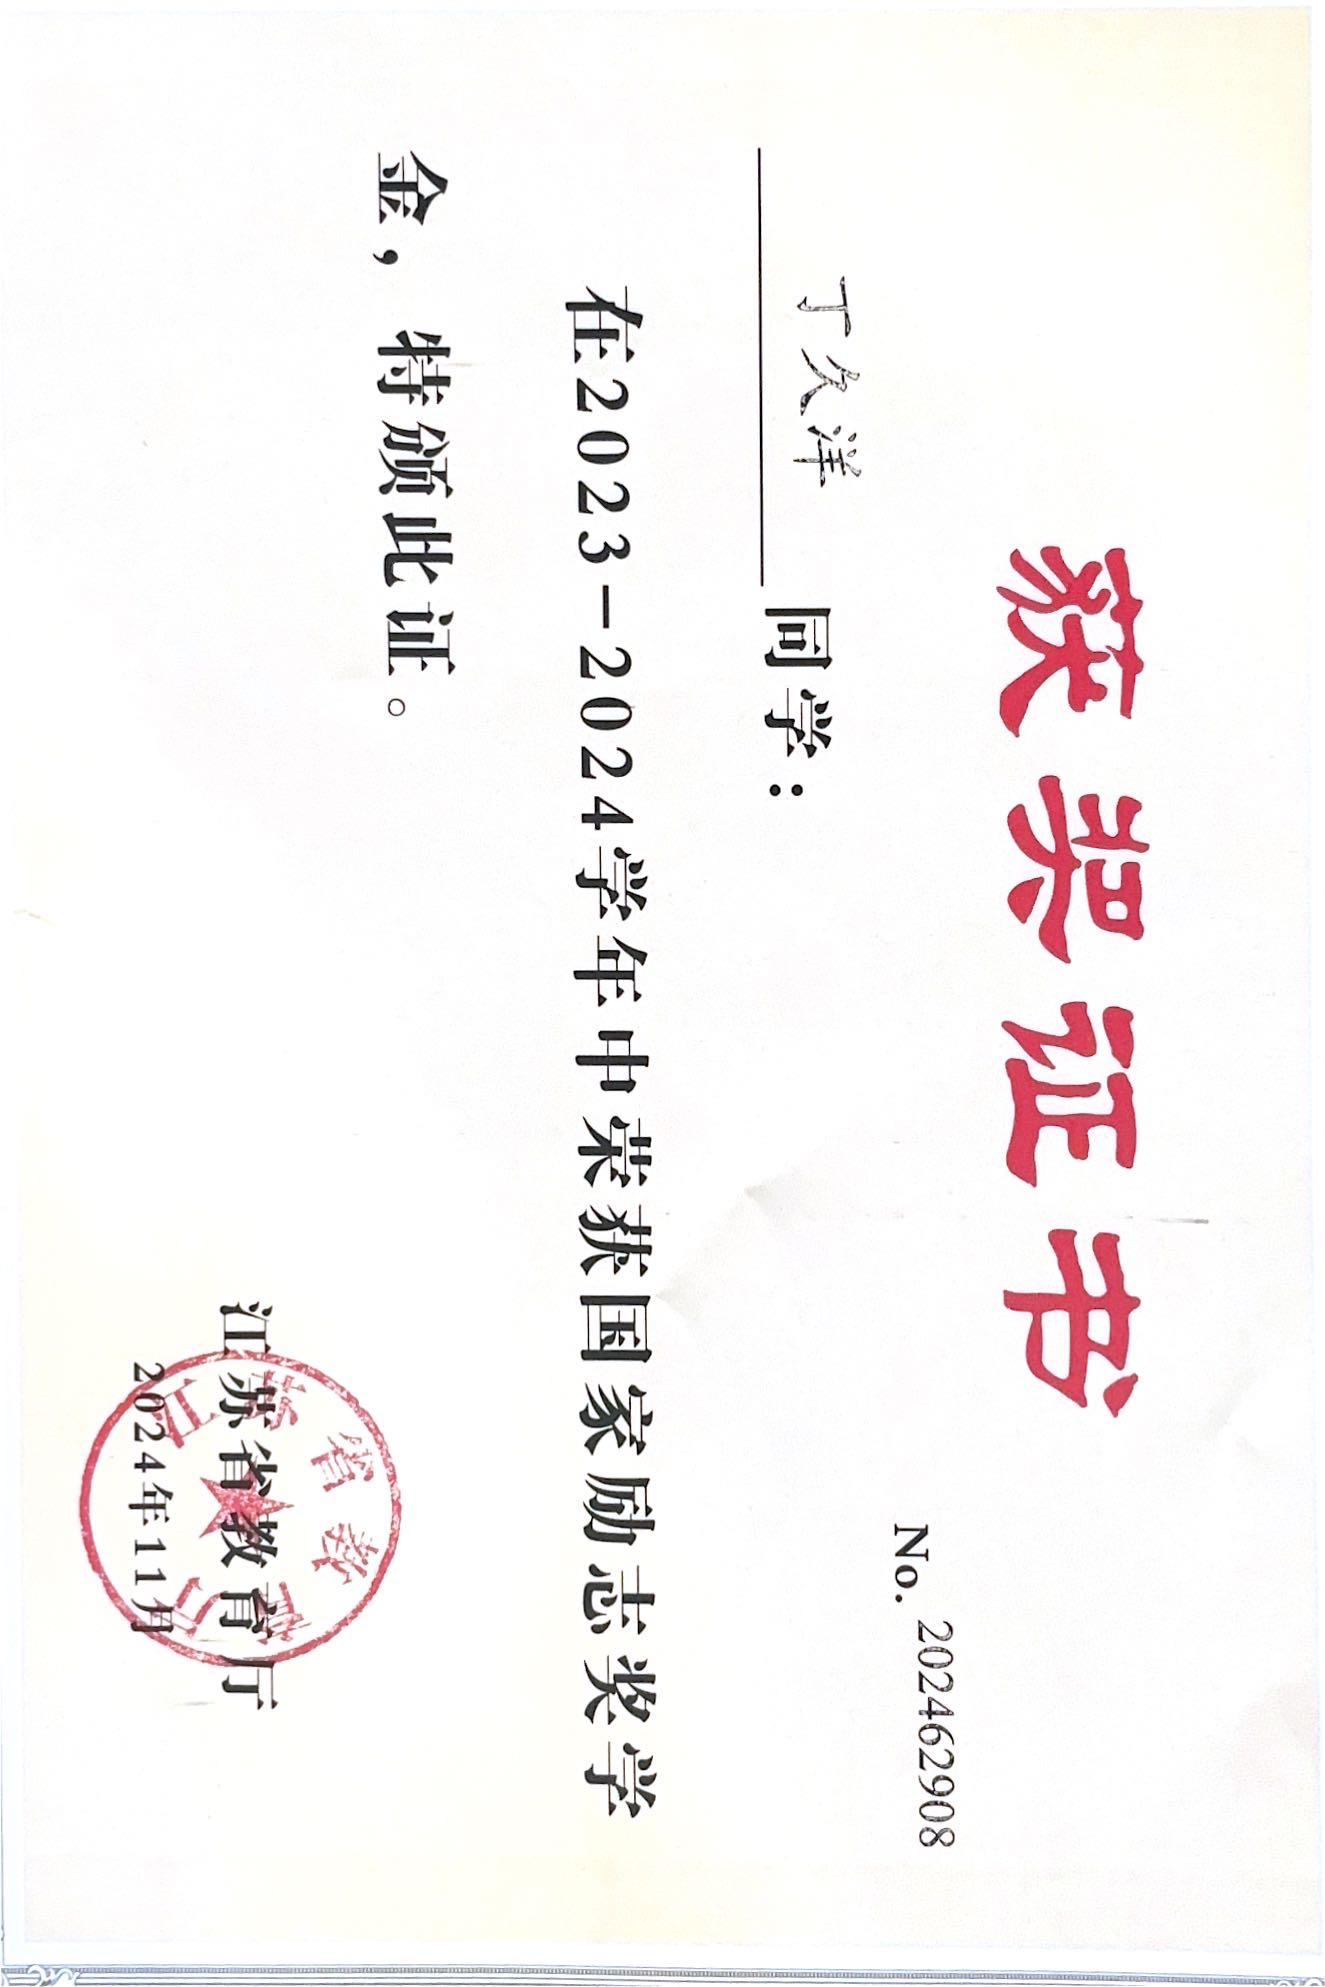 获奖证书
No. 202462908
丁久洋同学：
在2023－2024学年中荣获国家励志奖学
金，特颁此证。
江苏省教育厅
2024年11月
江苏省教育厅